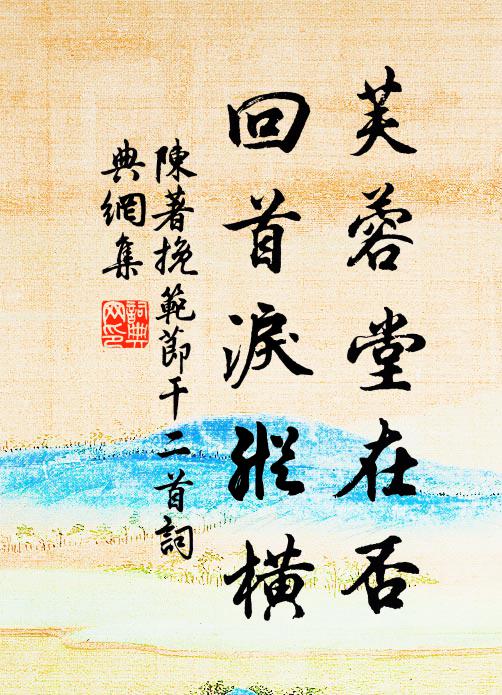 芙蓉堂在否
回首淚縱橫
陳著挽範節干二首詞
典網集
詞典網印